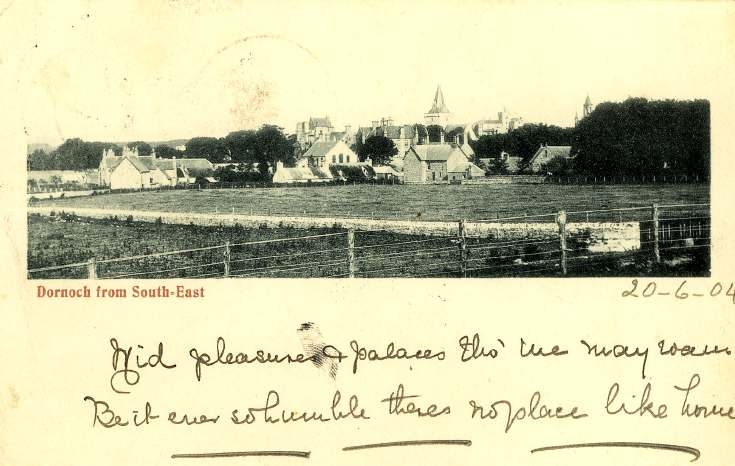 Dornoch from South-East
20-6-04
Mid pleasures & palaces tho' we may roam
Be it ever so humble theres no place like home